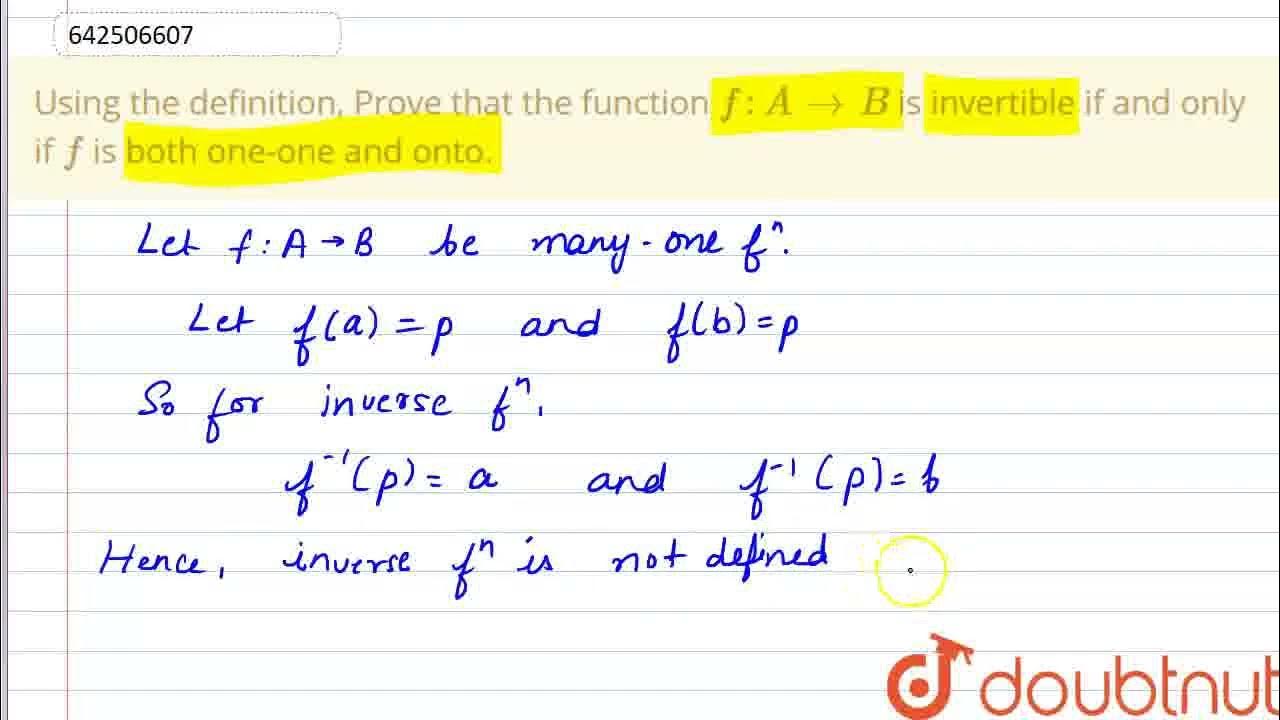 642506607
Using the definition, Prove that the function f : A → B is invertible if and only
if f is both one-one and onto.
Let f : A → B be many-one fⁿ.
Let f(a) = p and f(b) = p
So for inverse fⁿ.
f⁻¹(p) = a and f⁻¹(p) = b
Hence, inverse fⁿ is not defined
doubtnut